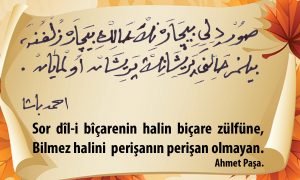 صور دل بیچاره نك حالن بیچاره زلفنه
بیلمز حالنی پریشانك پریشان اولمایان
احمد پاشا
Sor dîl-i bîçarenin halin biçare zülfüne,
Bilmez halini perişanın perişan olmayan.
Ahmet Paşa.